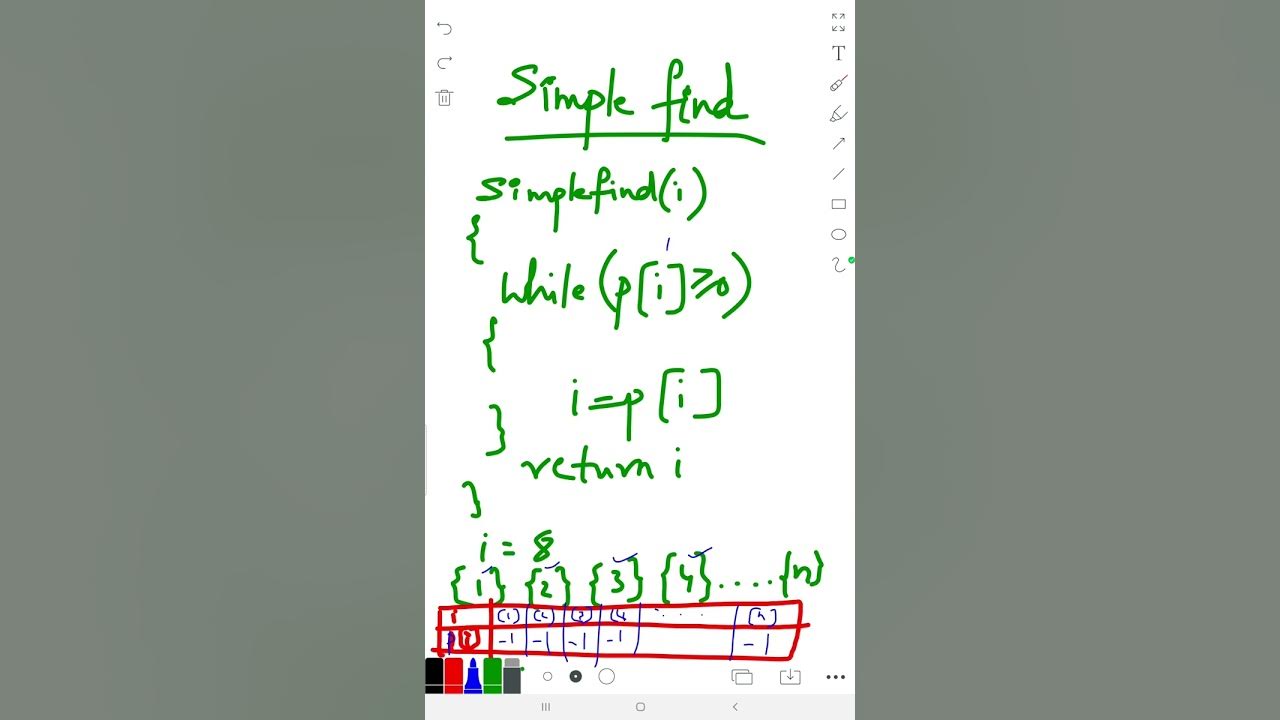 T
Simple find
Simplefind(i)
{
while(p[i]≥0)
{
i=p[i]
}
return i
}
i = 8
{1} {2} {3} {4} ....{n}
i [1] [2] [3] [4 .... [n]
p[i] -1 -1 -1 -1 -1